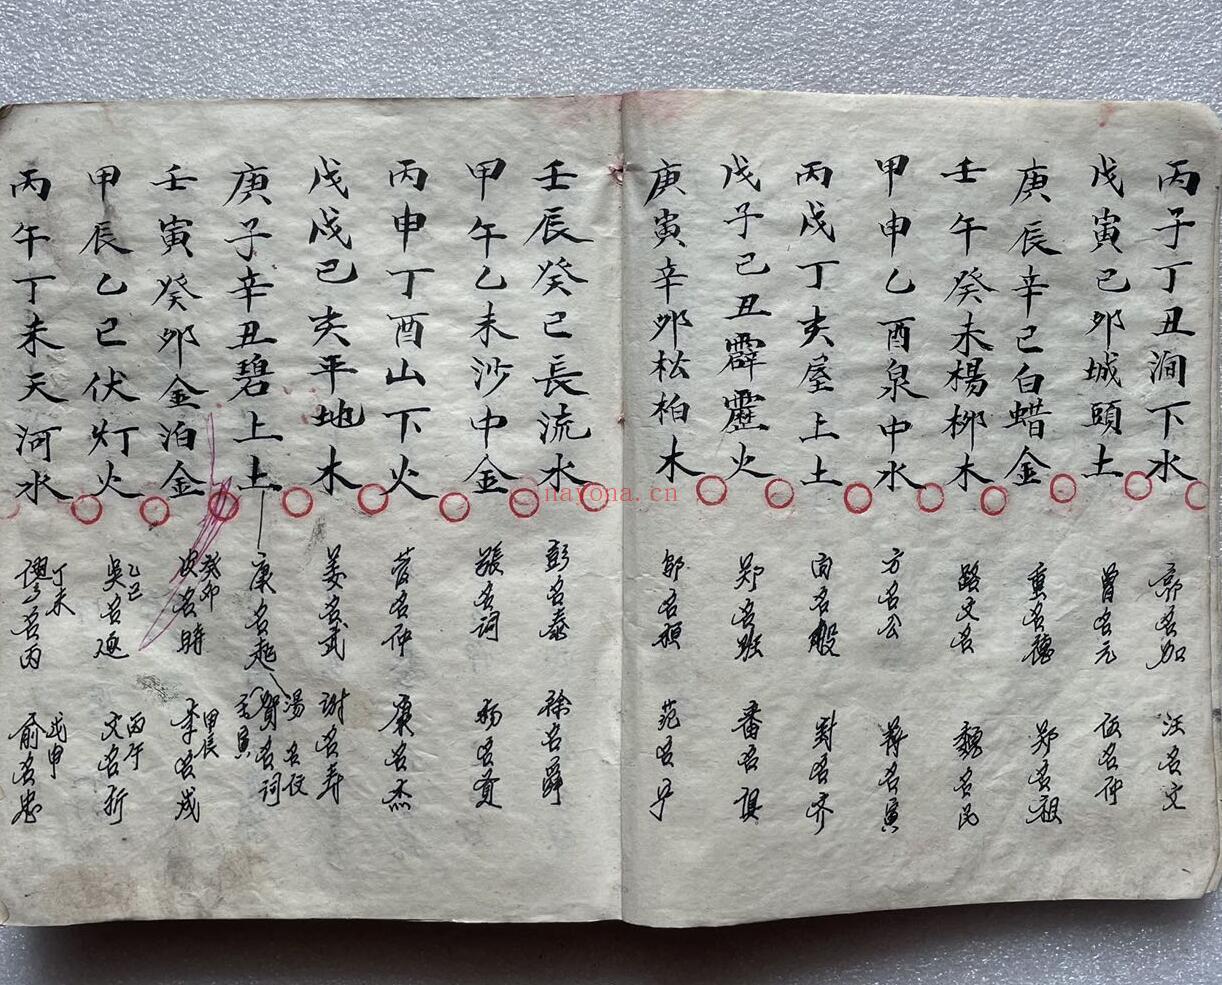 丙子丁丑澗下水
戊寅己卯城頭土
庚辰辛巳白蜡金
壬午癸未楊柳木
甲申乙酉泉中水
丙戌丁亥屋上土
戊子己丑霹靂火
庚寅辛卯松柏木
壬辰癸巳長流水
甲午乙未沙中金
丙申丁酉山下火
戊戌己亥平地木
庚子辛丑碧上土
壬寅癸卯金泊金
甲辰乙巳伏灯火
丙午丁未天河水
郭名加
汪名文
曾名元
伍名仲
重名德
郑名祖
路文名
魏名民
方名公
蒋名寅
向名般
封名齐
郑名
番名
郭名
范名
彭名泰
徐名舜
張名詞
杨名貢
管名仲
康名杰
姜名武
謝名寿
康名起
湯名仮
賀名詞
壬寅
癸卯
皮名時
甲辰
李名成
乙巳
吳名
丙午
文名折
丁未
名丙
戊申
俞名忠
nayona.cn